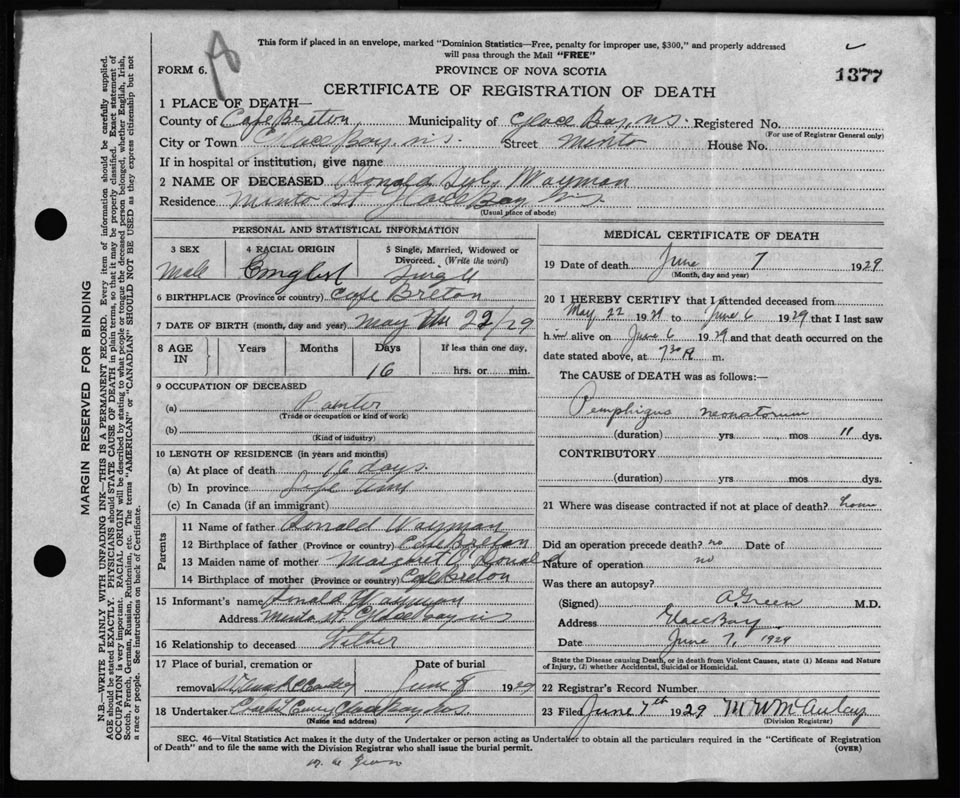 This form if placed in an envelope, marked "Dominion Statistics—Free, penalty for improper use, $300," and properly addressed
will pass through the Mail "FREE"
FORM 6.
PROVINCE OF NOVA SCOTIA
1377
CERTIFICATE OF REGISTRATION OF DEATH
1 PLACE OF DEATH—
County of Cape Breton Municipality of Glace Bay, N.S. Registered No.
(For use of Registrar General only)
City or Town Glace Bay, N.S. Street Minto House No.
If in hospital or institution, give name
2 NAME OF DECEASED Ronald Wayman
Residence Minto St Glace Bay N.S.
(Usual place of abode)
PERSONAL AND STATISTICAL INFORMATION
3 SEX 4 RACIAL ORIGIN 5 Single, Married, Widowed or
Divorced. (Write the word)
Male English Single
6 BIRTHPLACE (Province or country) Cape Breton
7 DATE OF BIRTH (month, day and year) May the 22/29
8 AGE IN Years Months Days If less than one day,
16 hrs. or min.
9 OCCUPATION OF DECEASED
(a)
(Trade or occupation or kind of work)
(b)
(Kind of industry)
10 LENGTH OF RESIDENCE (in years and months)
(a) At place of death 16 days.
(b) In province Life time
(c) In Canada (if an immigrant)
Parents
11 Name of father Ronald Wayman
12 Birthplace of father (Province or country) Cape Breton
13 Maiden name of mother Margaret
14 Birthplace of mother (Province or country) Cape Breton
15 Informant's name Ronald Wayman
Address Minto St. Glace Bay N.S.
16 Relationship to deceased Father
17 Place of burial, cremation or Date of burial
removal June 8 1929
18 Undertaker Glace Bay N.S.
(Name and address)
MEDICAL CERTIFICATE OF DEATH
19 Date of death June 7 1929
(Month, day and year)
20 I HEREBY CERTIFY that I attended deceased from
May 22 1929 to June 6 1929 and that I last saw
him alive on June 6 1929 and that death occurred on the
date stated above, at 7 30 P. m.
The CAUSE of DEATH was as follows:—
Pemphigus neonatorum
(duration) yrs. mos 11 dys.
CONTRIBUTORY
(duration) yrs. mos. dys.
21 Where was disease contracted if not at place of death? home
Did an operation precede death? no Date of
Nature of operation no
Was there an autopsy?
(Signed) A. Green M.D.
Address Glace Bay
Date June 7, 1929
State the Disease causing Death, or in death from Violent Causes, state (1) Means and Nature
of Injury, (2) whether Accidental, Suicidal or Homicidal.
22 Registrar's Record Number
23 Filed June 7th 1929 M W McAulay
(Division Registrar)
SEC. 46—Vital Statistics Act makes it the duty of the Undertaker or person acting as Undertaker to obtain all the particulars required in the "Certificate of Registration
of Death" and to file the same with the Division Registrar who shall issue the burial permit. (OVER)
MARGIN RESERVED FOR BINDING
N.B.—WRITE PLAINLY WITH UNFADING INK—THIS IS A PERMANENT RECORD. Every item of information should be carefully supplied.
AGE should be stated EXACTLY. PHYSICIANS should STATE CAUSE OF DEATH in plain terms, so that it may be properly classified. Exact statement of
OCCUPATION is very important. RACIAL ORIGIN will be described by stating to what people or tongue the deceased person belonged, whether English, Irish,
Scotch, French, German, Russian, Ruthenian, etc. The terms "AMERICAN" or "CANADIAN" SHOULD NOT BE USED as they express citizenship but not
a race or people. See instructions on back of Certificate.